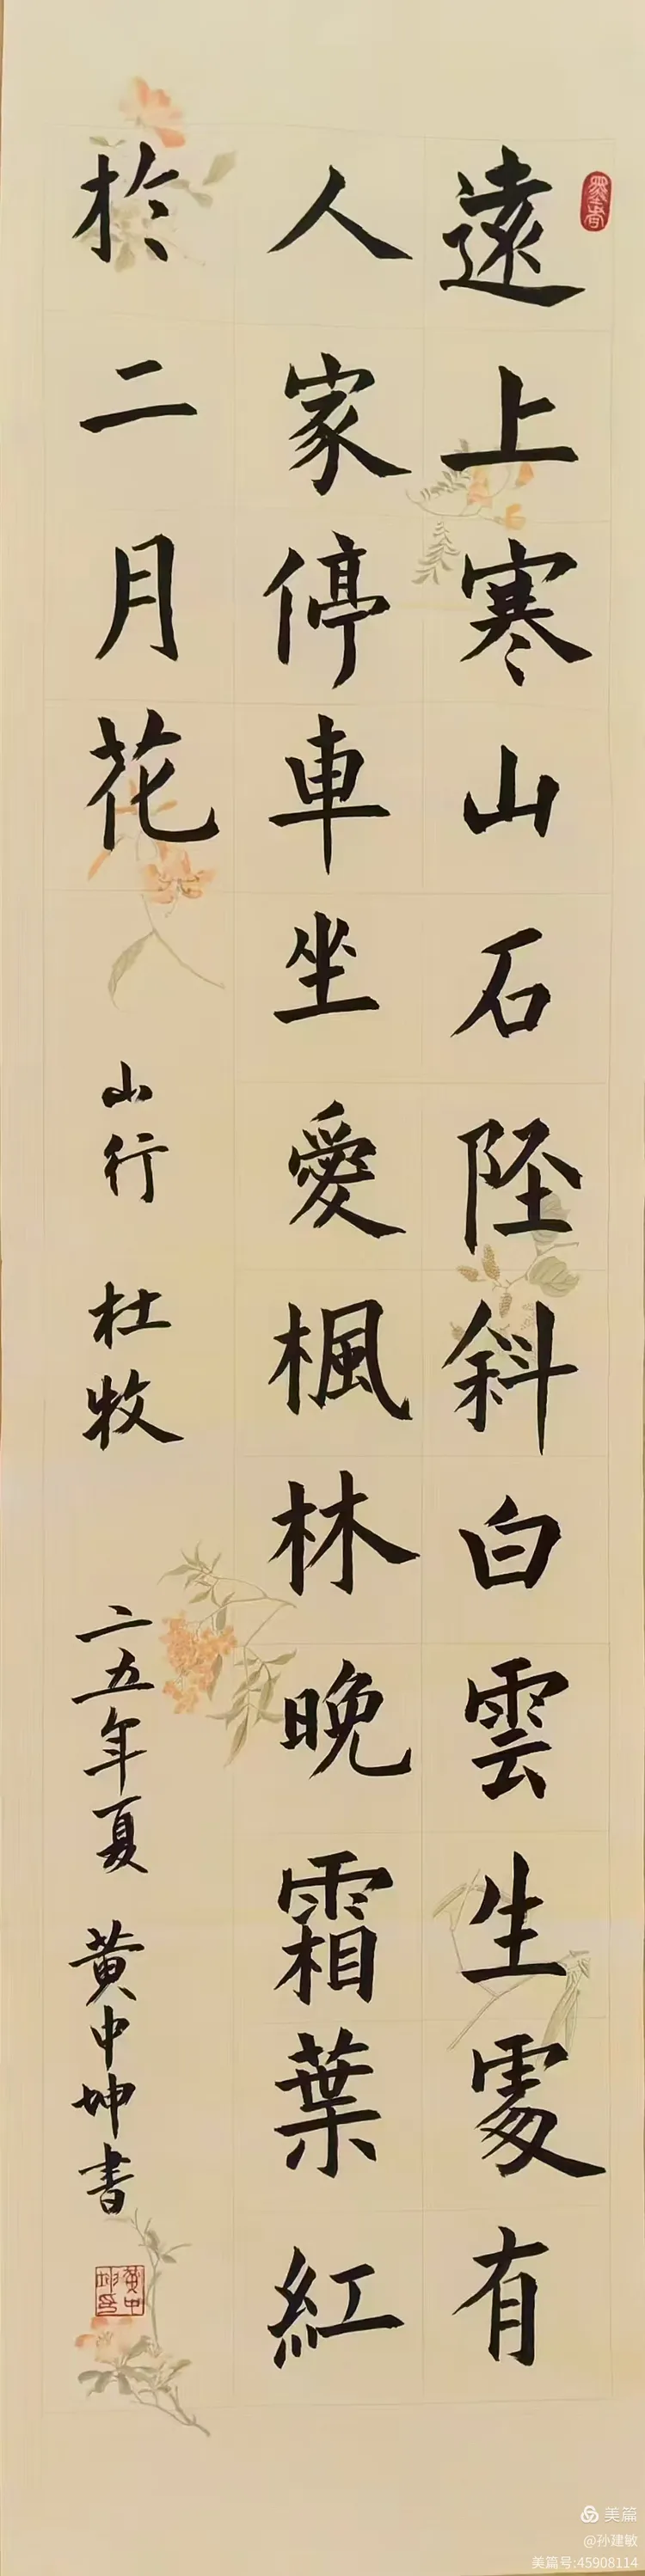 遠上寒山石陘斜白雲生處有
人家停車坐愛楓林晚霜葉紅
於二月花
山行 杜牧
二五年夏 黄中坤書
黄中坤印
美篇
@孙建敏
美篇号:45908114